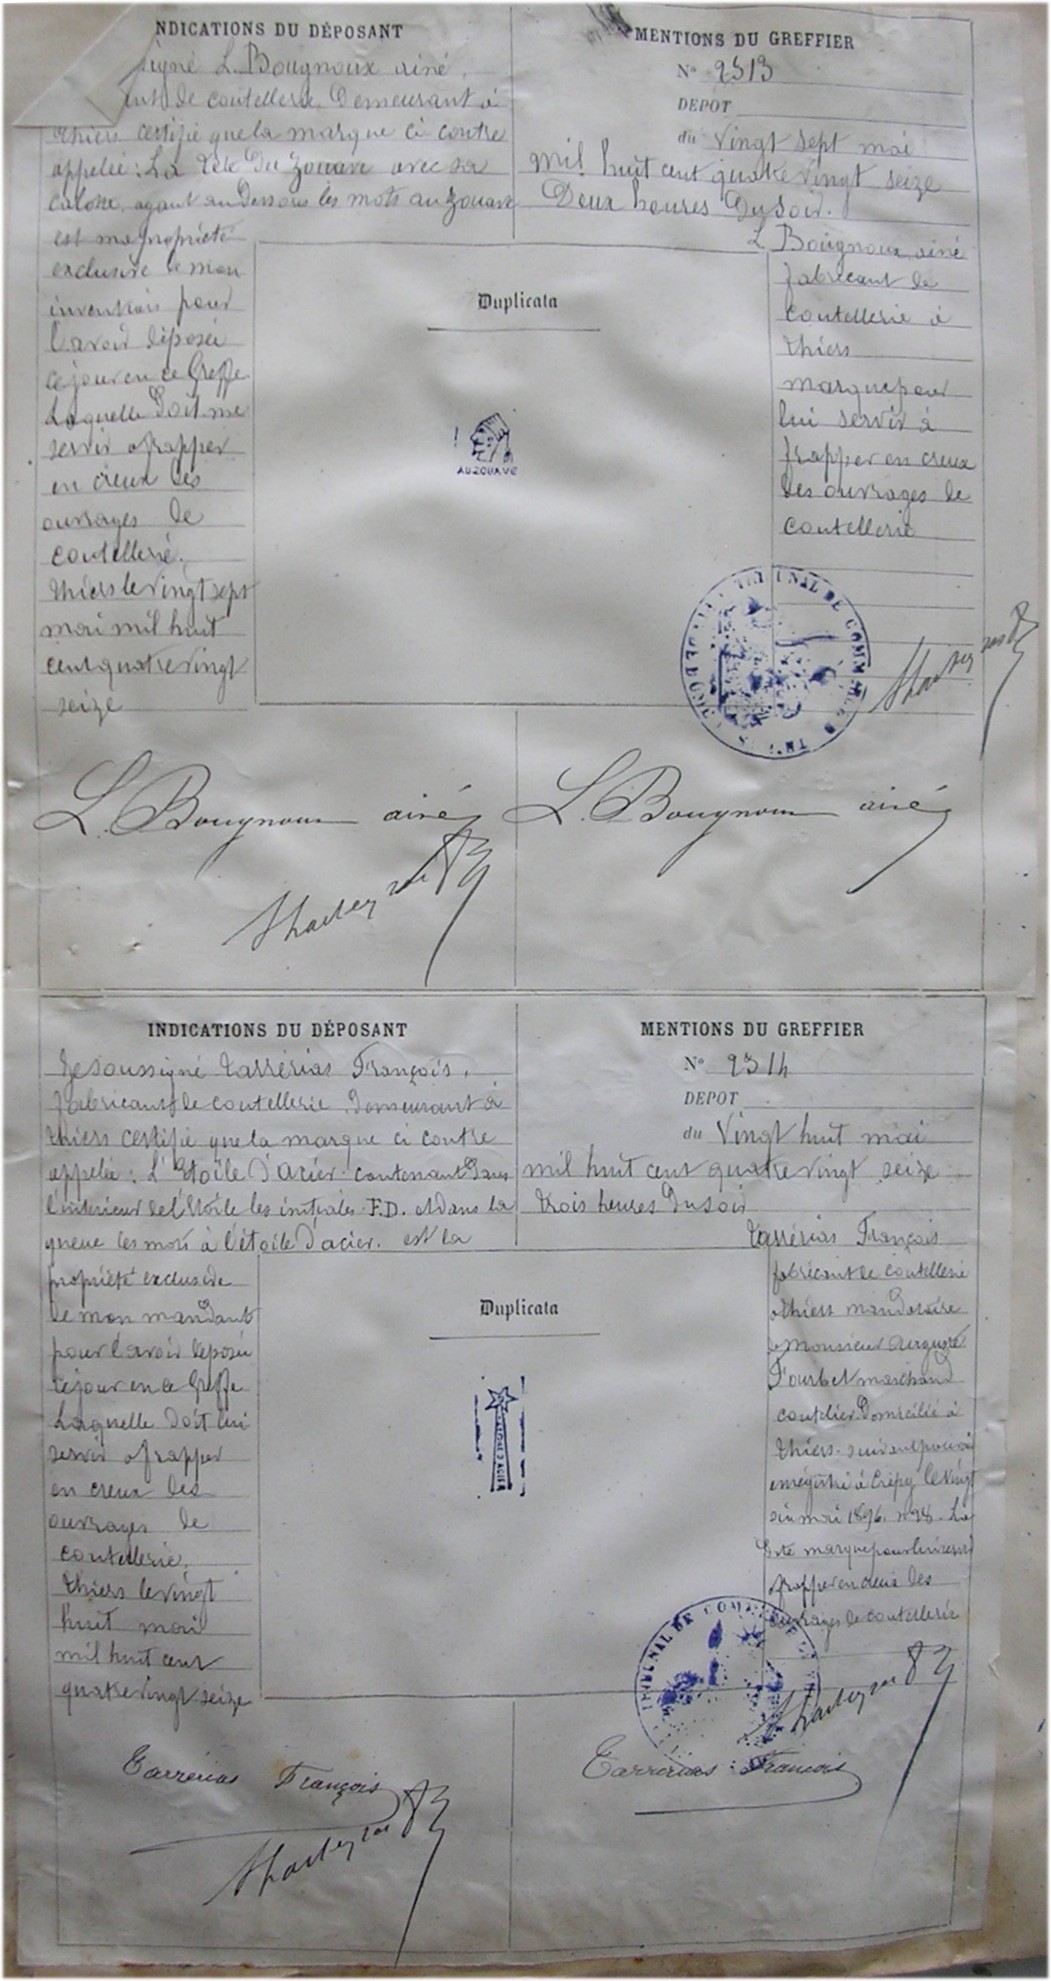 NDICATIONS DU DÉPOSANT
signé L. Bougnoux ainé,
de coutellerie, Demeurant à
thiers certifie que la marque ci contre
appelée : La Tête Du Zouave avec sa
calotte, ayant au Dessous les mots au Zouave
est ma propriété
exclusive de mon
invention pour
l'avoir déposée
ce jour en ce Greffe
Laquelle Doit me
servir a frapper
en creux des
ouvrages de
coutellerie.
thiers le vingt sept
mai mil huit
cent quatre vingt
seize
MENTIONS DU GREFFIER
N° 2313
DEPOT
du vingt sept mai
mil huit cent quatre vingt seize
Deux heures Du Soir.
L Bougnoux ainé
fabricant de
coutellerie à
thiers
marque pour
lui servir à
frapper en creux
des ouvrages de
coutellerie
Duplicata
AU ZOUAVE
TRIBUNAL DE COMMERCE
L. Bougnoux ainé
L. Bougnoux ainé
INDICATIONS DU DÉPOSANT
Je soussigné Tarrérias François,
fabricant de coutellerie Demeurant à
thiers certifie que la marque ci contre
appelée : L'Etoile D'acier contenant Dans
l'intérieur de l'Etoile les initiales F.D. et dans la
queue les mots à l'étoile d'acier. est la
propriété exclusive
de mon mandant
pour l'avoir déposée
ce jour en ce Greffe
Laquelle Doit lui
servir a frapper
en creux des
ouvrages de
coutellerie.
thiers le vingt
huit mai
mil huit cent
quatre vingt seize
MENTIONS DU GREFFIER
N° 2314
DEPOT
du Vingt huit mai
mil huit cent quatre vingt seize
trois heures Du Soir
Tarrérias François
fabricant de coutellerie
a thiers mandataire
de Monsieur
marchand
coutelier Domicilié à
thiers suivant pouvoir
enregistré à Crépy le vingt
six mai 1896. n° 98. La
Dte marque pour lui servir
a frapper en creux des
ouvrages de coutellerie
Duplicata
A L'ETOILE D'ACIER
TRIBUNAL DE COMMERCE
Tarrérias François
Tarrérias François